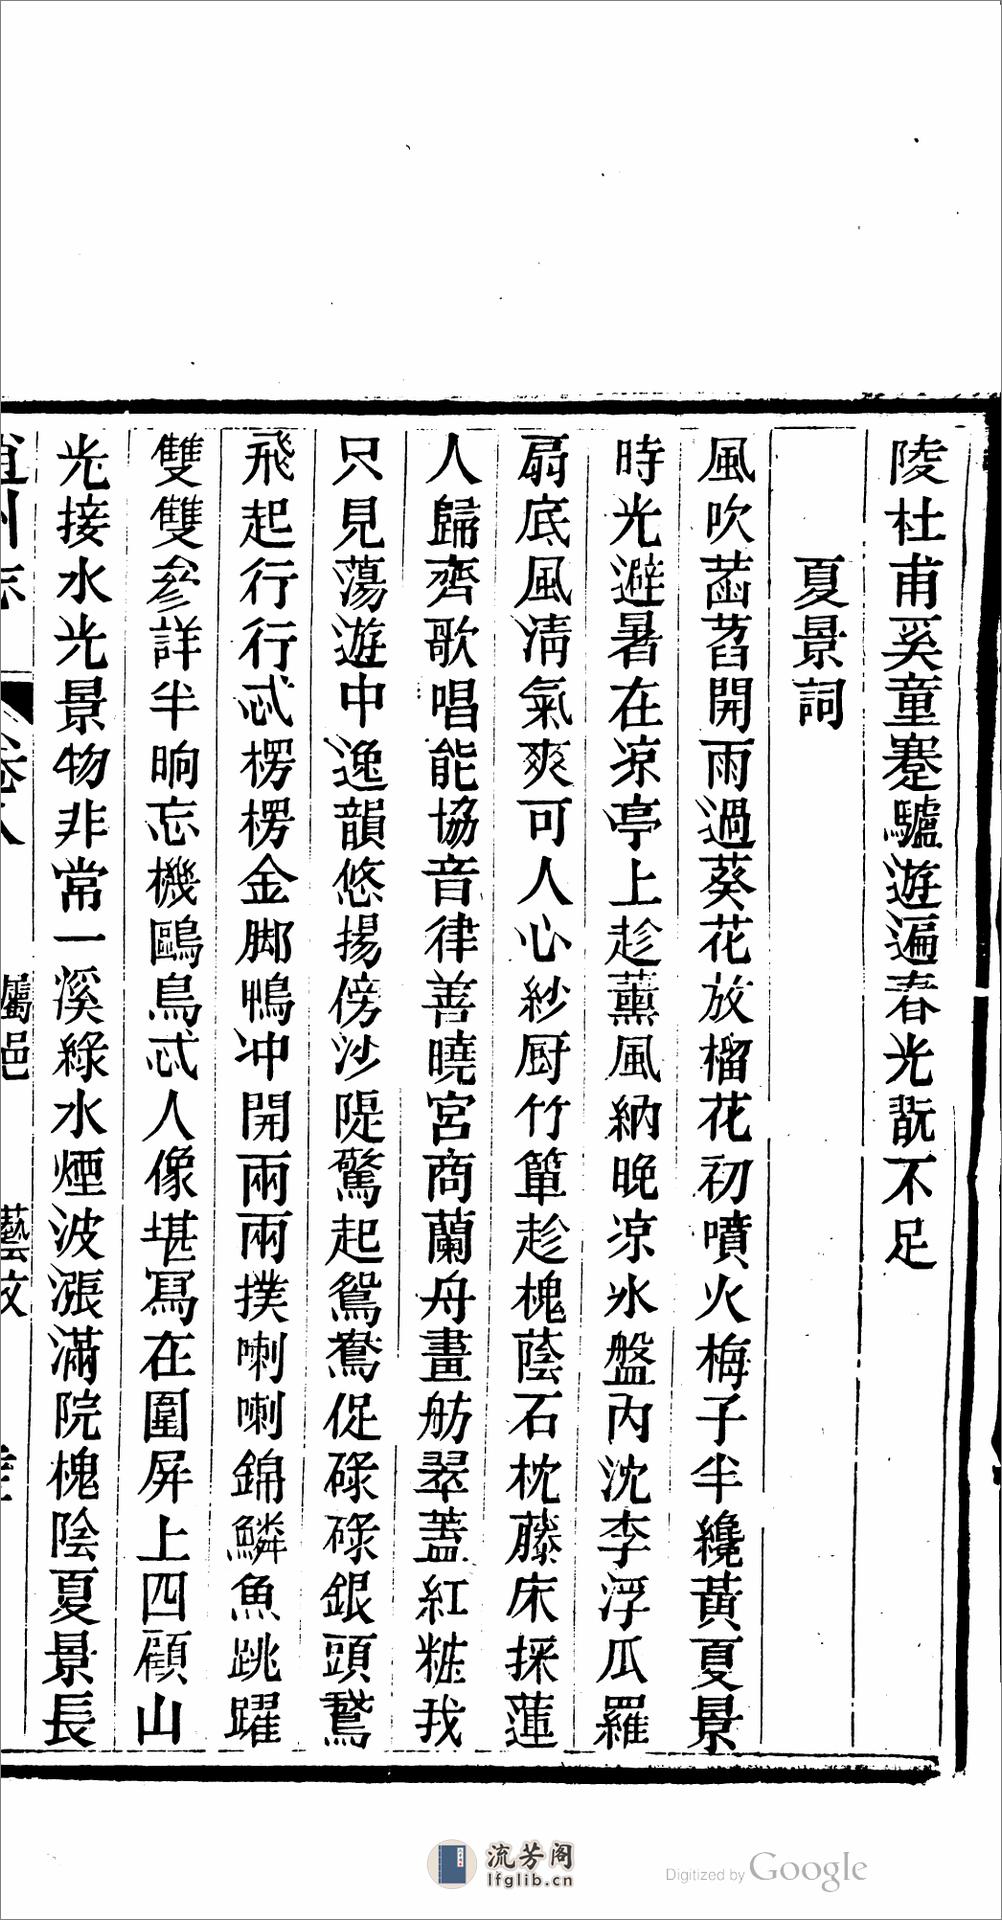 陵杜甫奚童蹇驢遊遍春光翫不足
夏景詞
風吹菡萏開雨過葵花放榴花初噴火梅子半纔黃夏景
時光避暑在凉亭上趁薰風納晚凉氷盤內沈李浮瓜羅
扇底風凊氣爽可人心紗厨竹簟趁槐蔭石枕藤床採蓮
人歸齊歌唱能協音律善曉宮商蘭舟畫舫翠蓋紅粧我
只見蕩遊中逸韻悠揚傍沙隄驚起鴛鴦促碌碌銀頭鵞
飛起行行忒楞楞金脚鴨冲開兩兩撲喇喇錦鱗魚跳躍
雙雙參詳半晌忘機鷗鳥忒人像堪冩在圍屏上四顧山
光接水光景物非常一溪綠水煙波漲滿院槐陰夏景長
道州志
卷八
屬邑
藝文
流芳阁
lfglib.cn
Digitized by Google